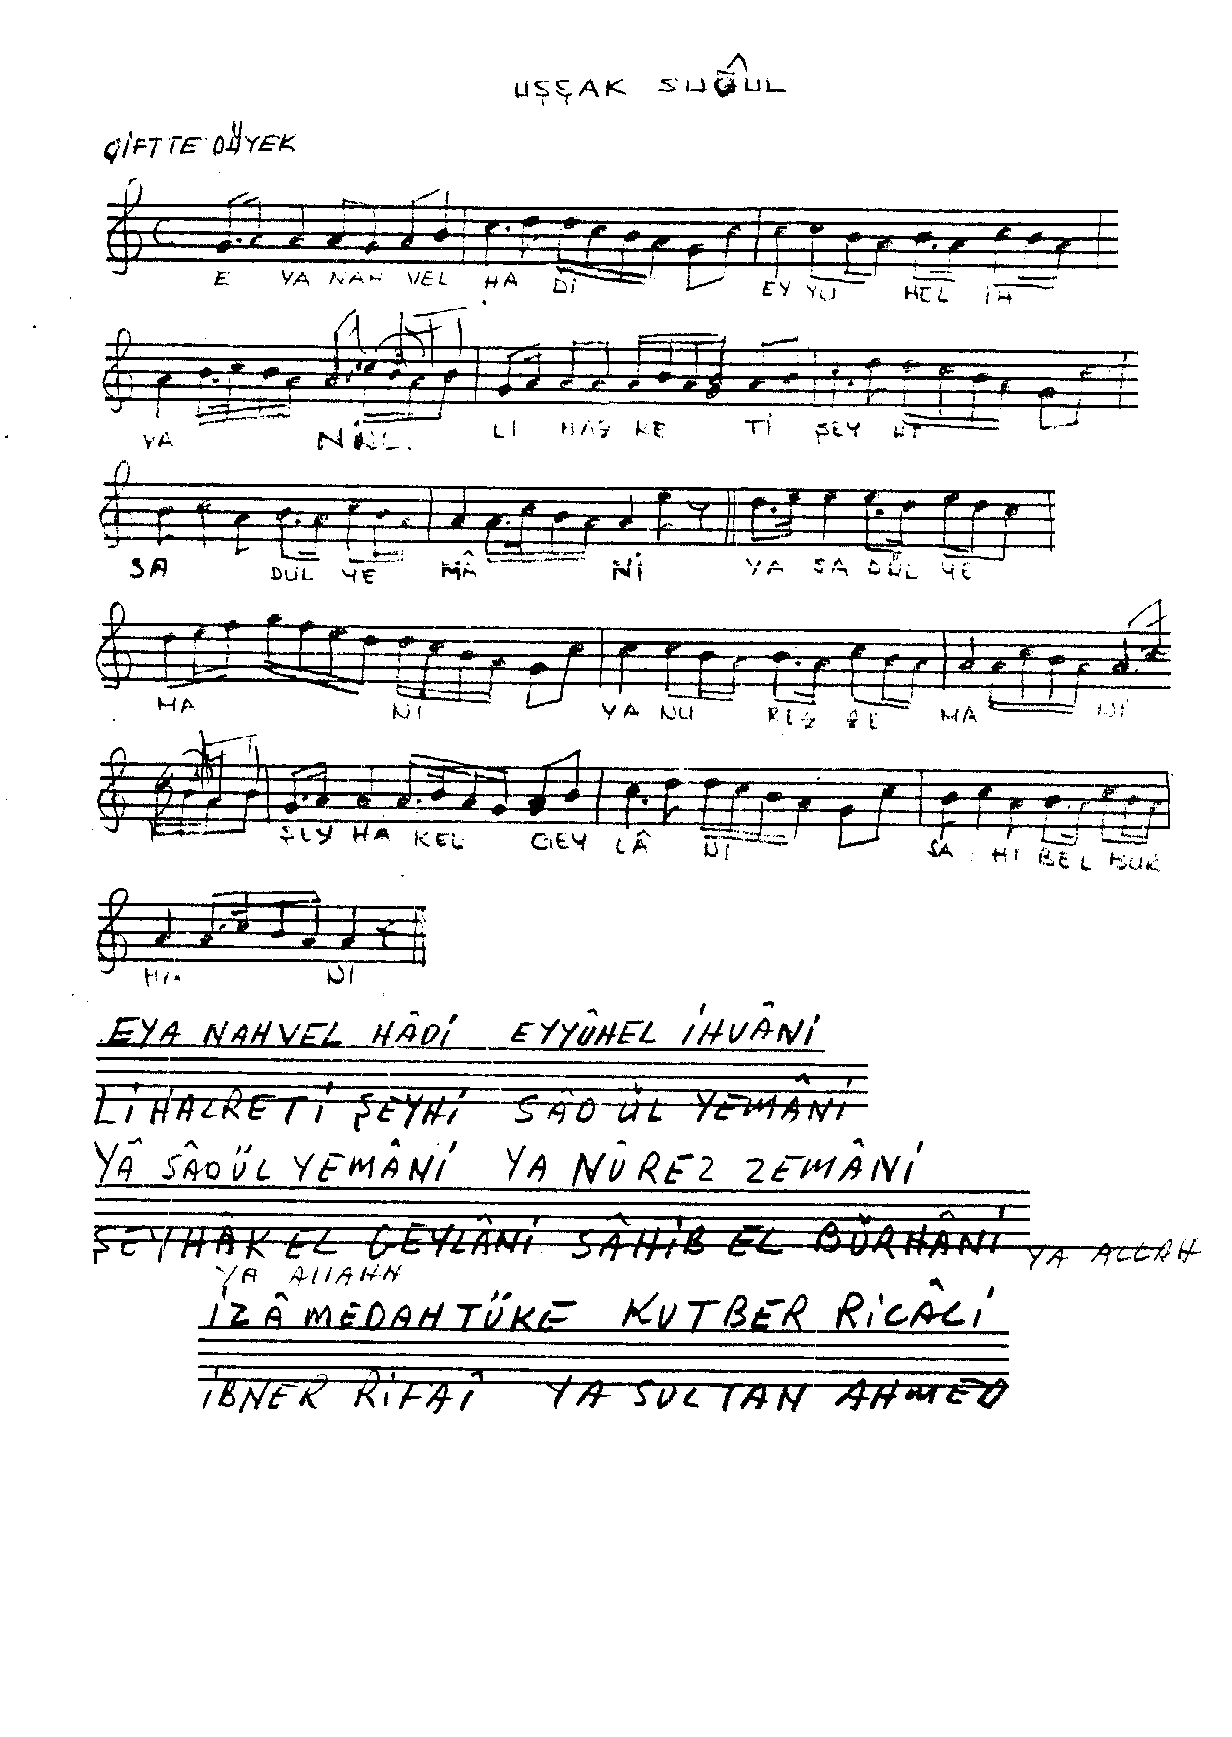 UŞŞAK SUĞÛL
ÇİFTTE DÜYEK
E YA NAH VEL HA Dİ EY YU HEL İH
VA NİNL.
Lİ HAZ RE Tİ ŞEY Hİ
SA DÜL YE MÂ Nİ YA SA DÜL YE
MA Nİ YA NU REZ ZE MA Nİ
ŞEY HA KEL GEY LÂ Nİ SA Hİ BEL BUR
HA Nİ
EYA NAHVEL HÂDİ EYYÛHEL İHVÂNİ
LİHALRETİ ŞEYHİ SÂDÜL YEMÂNİ
YÂ SÂDÜL YEMÂNİ YA NÛREZ ZEMÂNİ
ŞEYHÂKEL GEYLÂNİ SÂHİBEL BÜRHÂNİ YA ALLAH
YA ALLAHH
İZÂ MEDAHTÜKE KUTBER RİCÂLİ
İBNER RİFAİ YA SULTAN AHMED